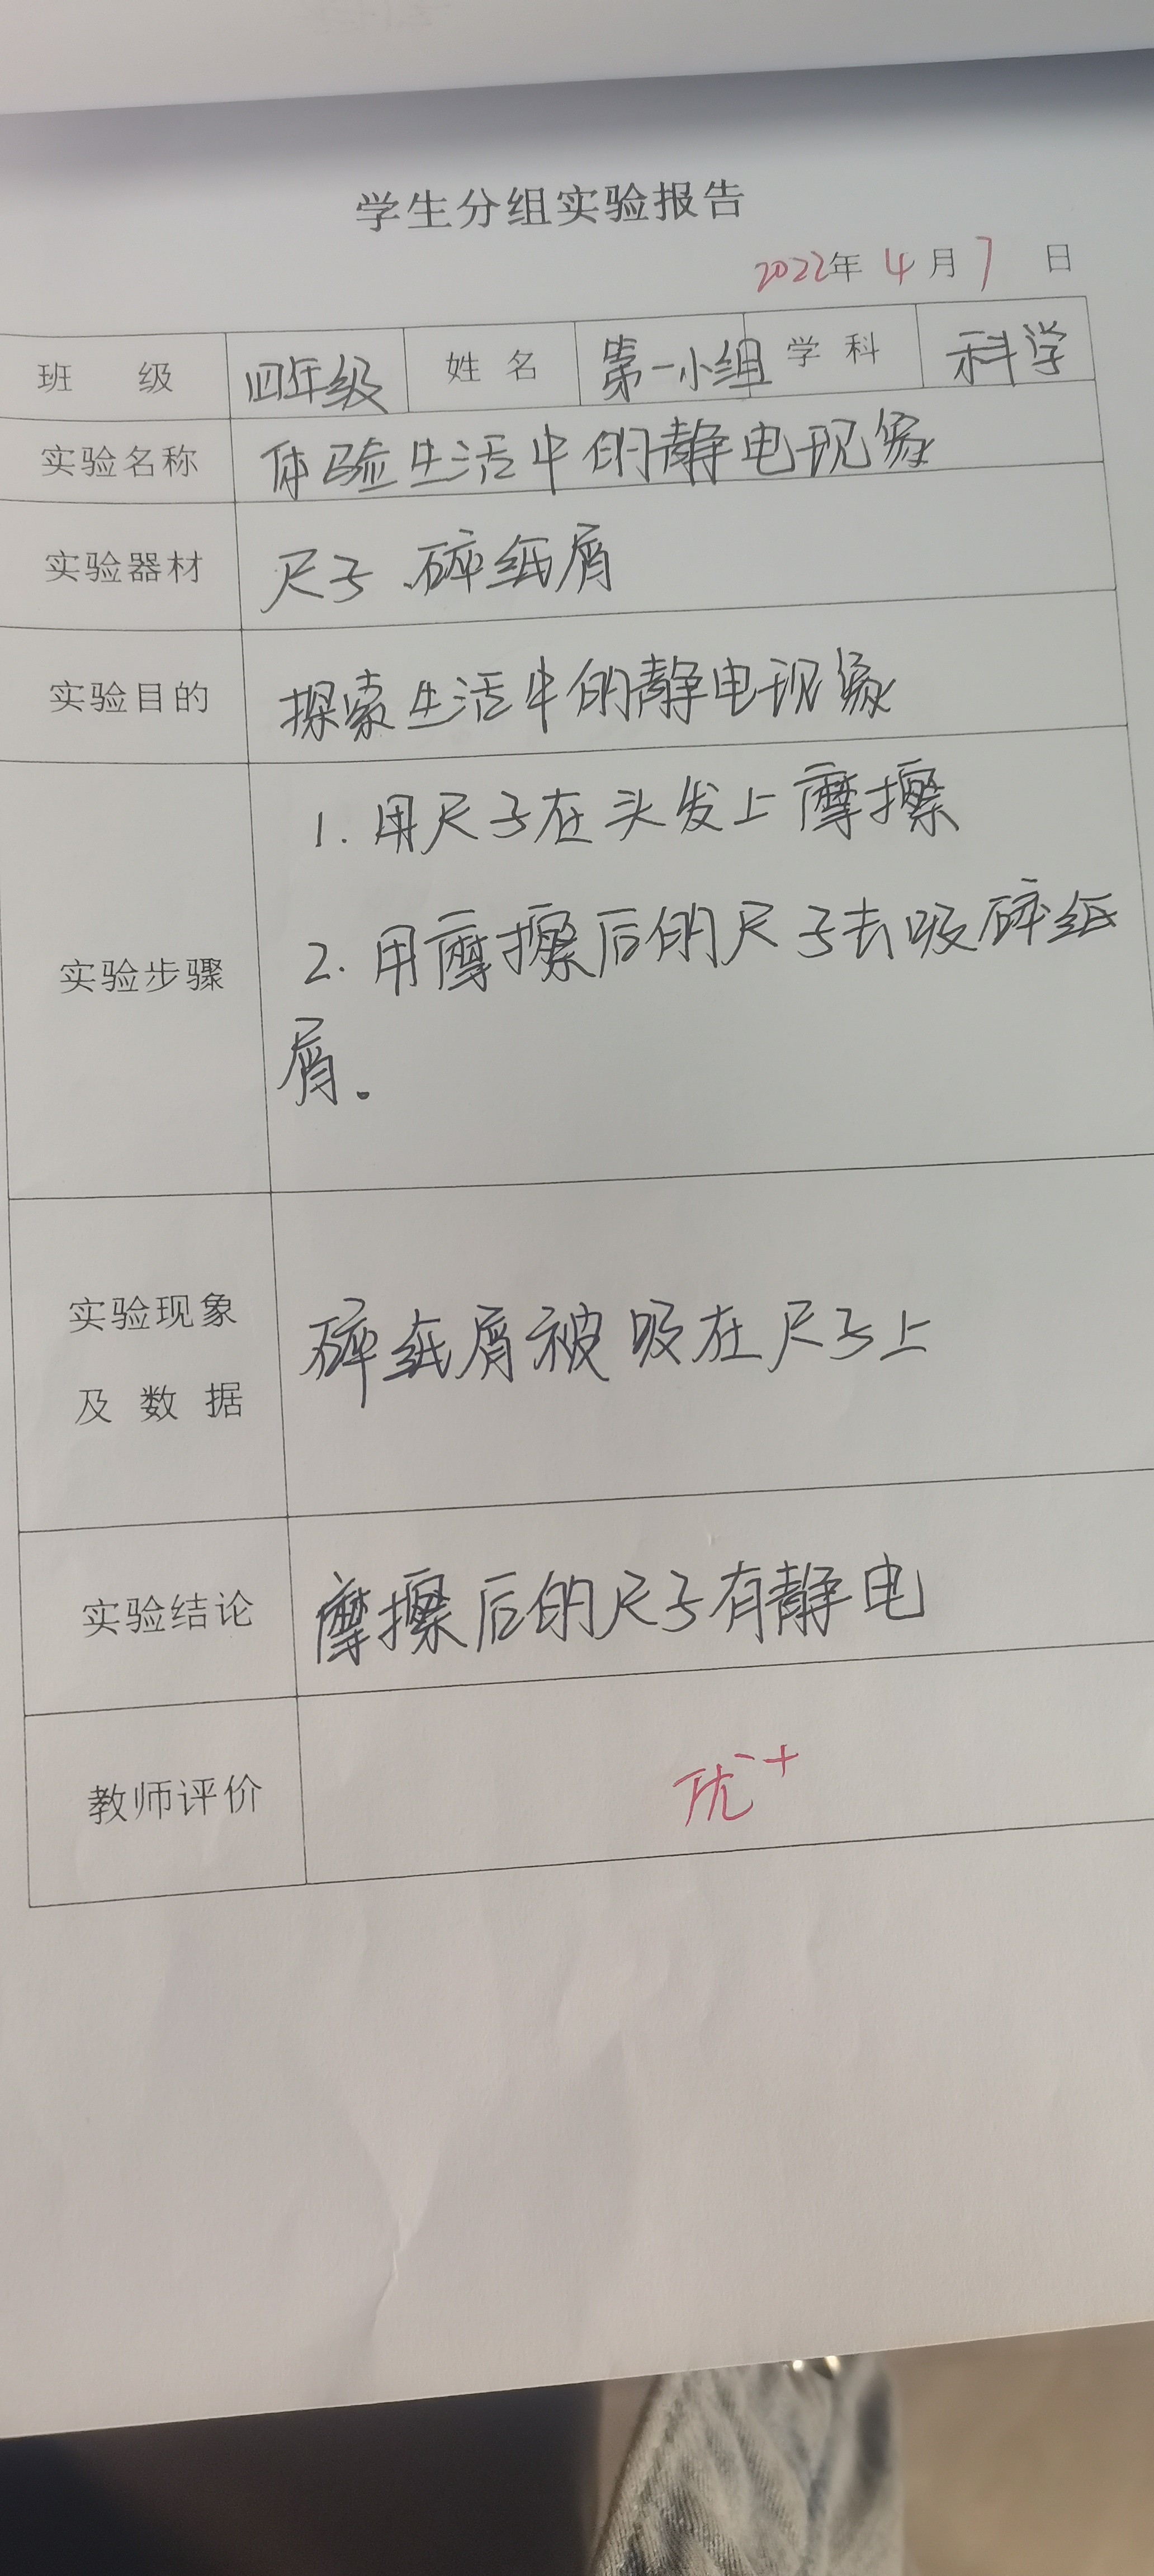 学生分组实验报告
2022年 4月7 日
班 级 四年级 姓 名 第一小组 学 科 科学
实验名称 体验生活中的静电现象
实验器材 尺子 碎纸屑
实验目的 探索生活中的静电现象
1. 用尺子在头发上摩擦
实验步骤 2. 用摩擦后的尺子去吸碎纸
屑.
实验现象
及 数 据 碎纸屑被吸在尺子上
实验结论 摩擦后的尺子有静电
教师评价 优+